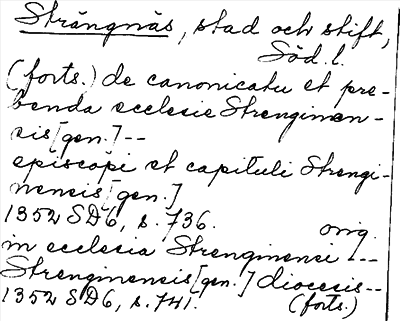 Strängnäs, stad och stift,
Söd. l.
(forts.) de canonicatu et pre-
benda ecclesie Strenginen-
sis [gen.] --
episcopi et capituli Strengi-
nensis [gen.]
1352 SD6, s. 736. orig.
in ecclesia Strenginensi ---
Strenginensis [gen.] diocesis--
1352 SD6, s. 741. (forts.)